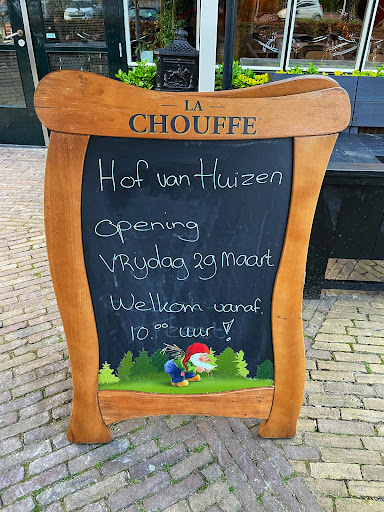 LA
CHOUFFE
Hof van Huizen
Opening
Vrijdag 29 Maart
Welkom vanaf.
10.00 uur!